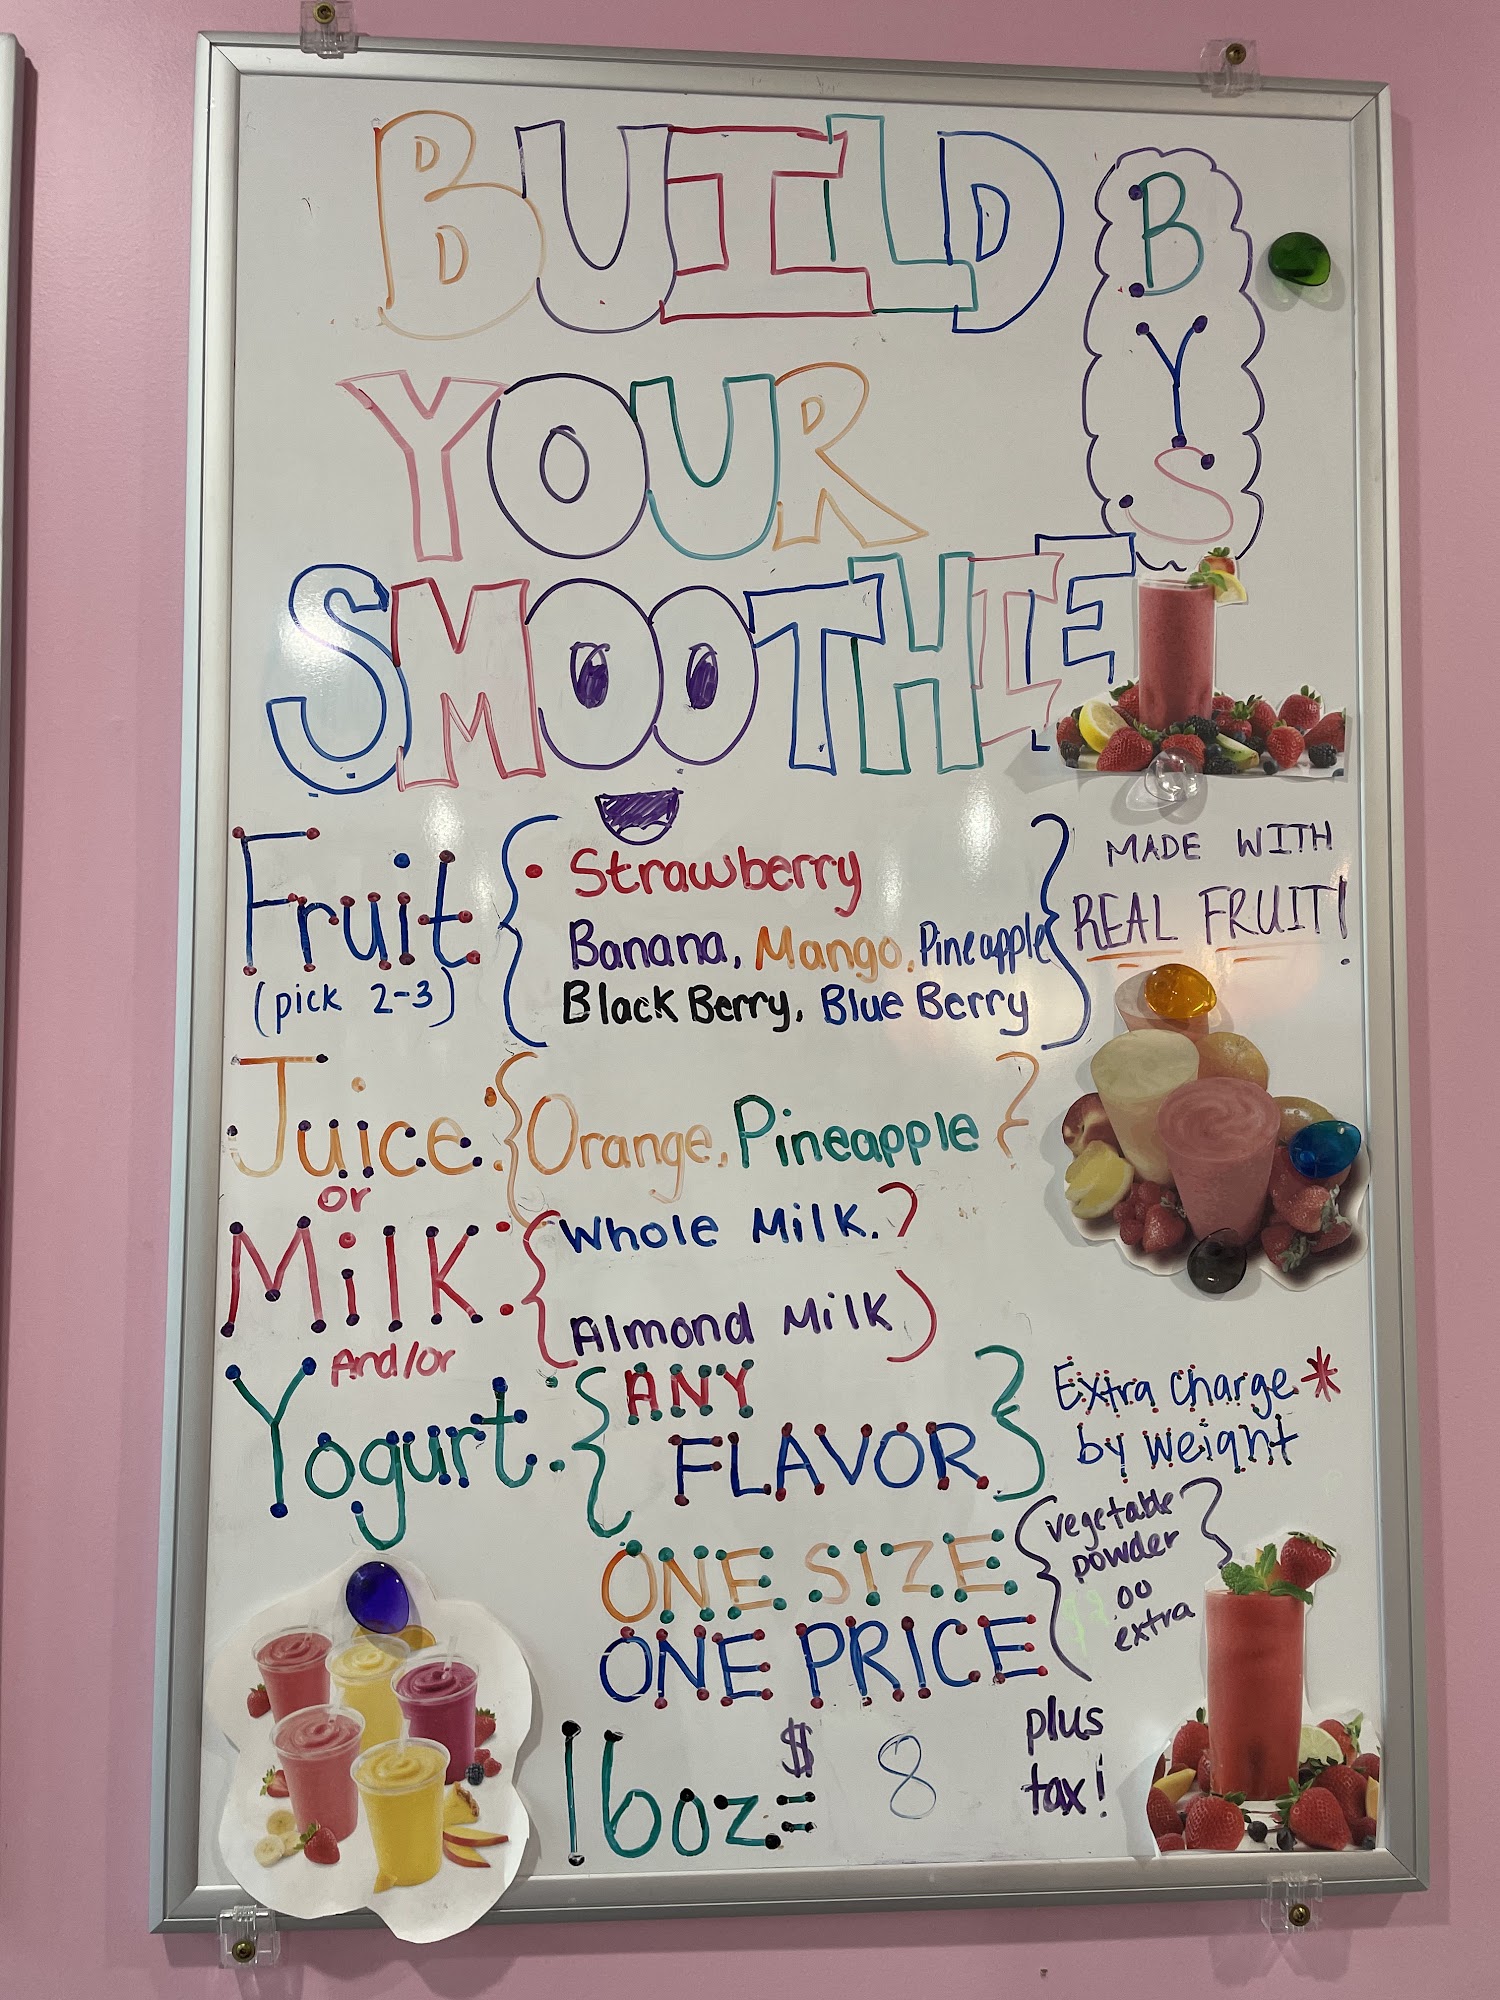 BUILD
YOUR
SMOOTHIE
B
Y
S
Fruit
(pick 2-3)
• Strawberry
Banana, Mango, Pineapple
Black Berry, Blue Berry
MADE WITH
REAL FRUIT!
Juice: {Orange, Pineapple}
or
Milk:
Whole Milk.
Almond Milk
And/or
Yogurt:
ANY
FLAVOR
Extra charge *
by weight
ONE SIZE
ONE PRICE
vegetable
powder
extra
16oz = $ 8
plus
tax!